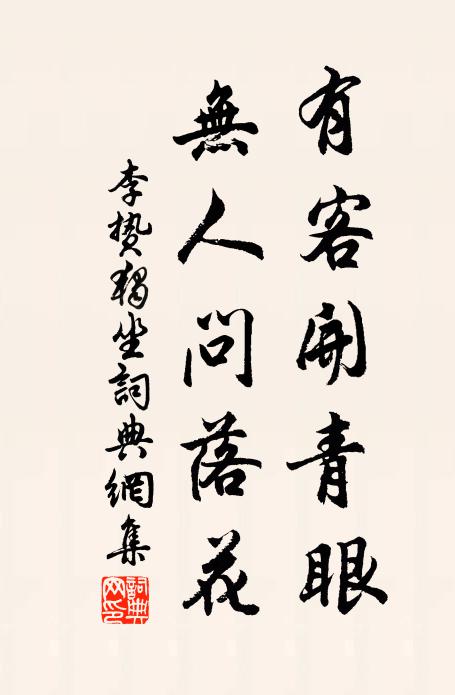 有客開青眼
無人問落花
李贄獨坐詞典網集
詞典网印